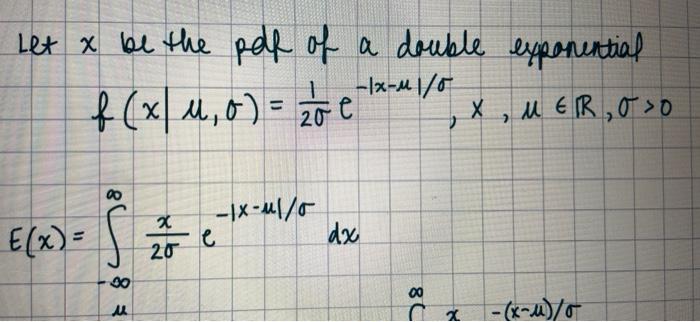 Let x be the pdf of a double exponential
f(x|μ,σ) = 1/2σ e^-|x-μ|/σ, x, μ ∈ ℝ, σ>0
E(x) = ∫_-∞^∞ x/2σ e^-|x-μ|/σ dx
μ ∞ ∫ x -(x-μ)/σ